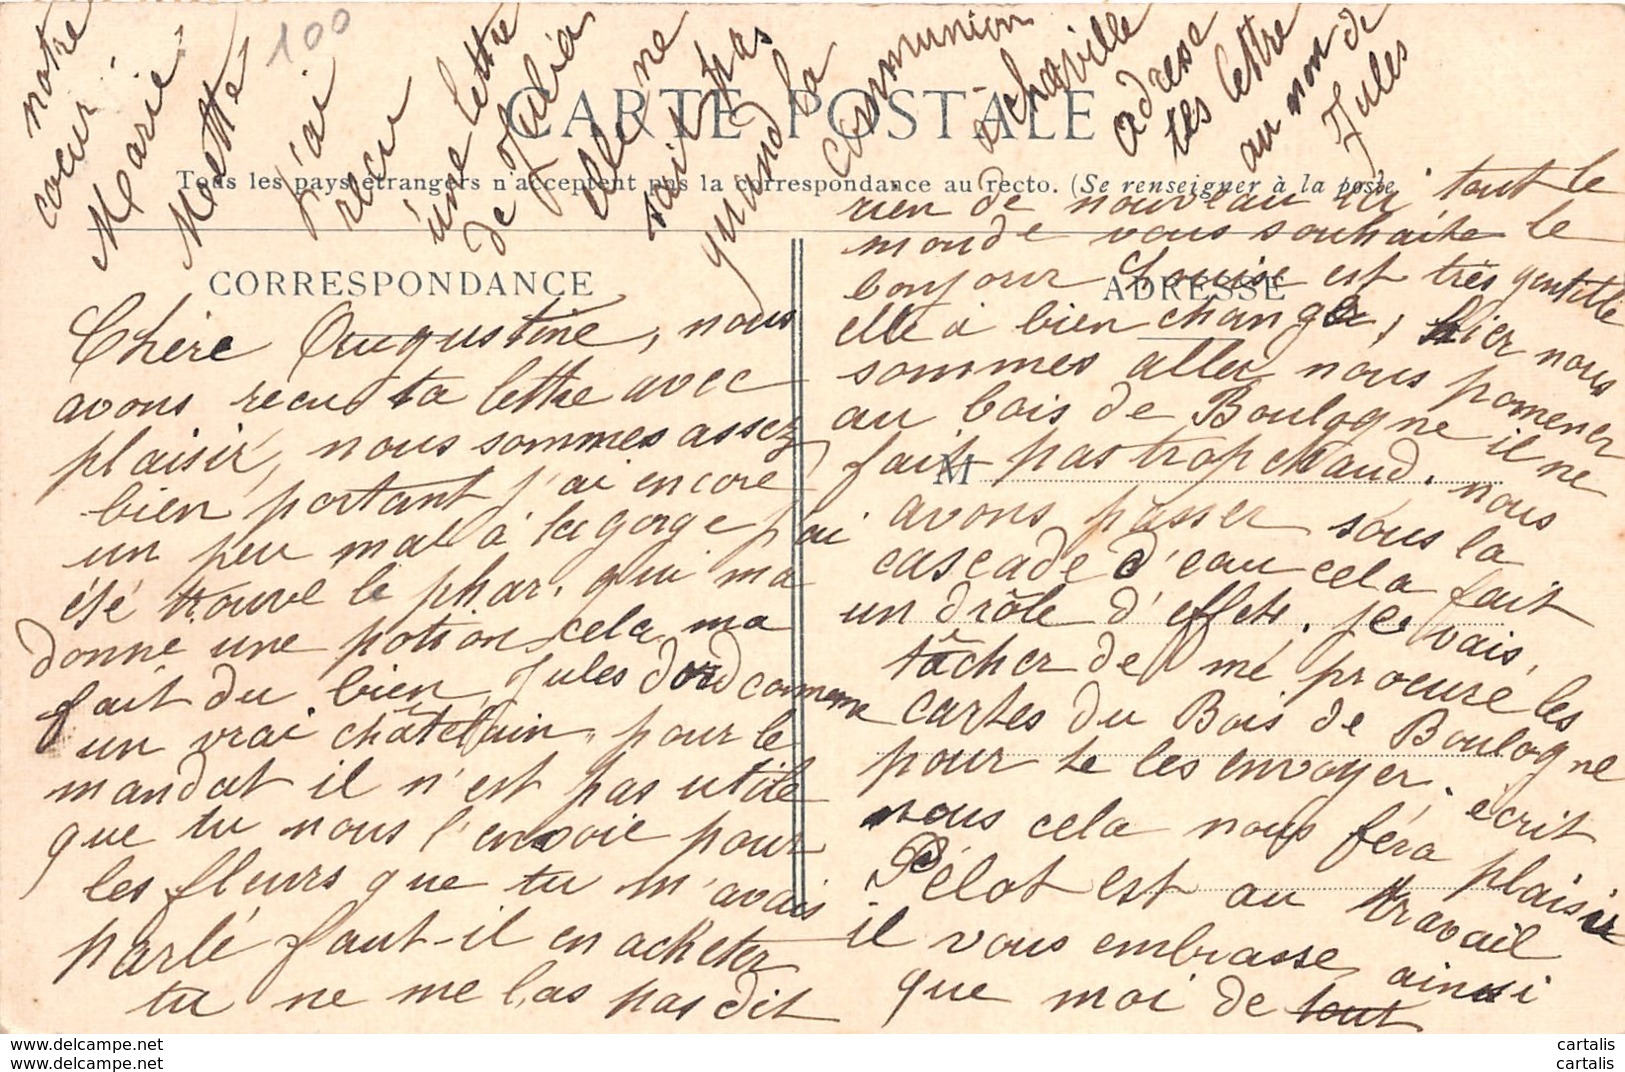 CARTE POSTALE
Tous les pays étrangers n'acceptent pas la correspondance au recto. (Se renseigner à la poste
CORRESPONDANCE
ADRESSE
M
Chère Augustine, nous
avons recu ta lettre avec
plaisir, nous sommes assez
bien portant j'ai encore
un peu mal à la gorge j'ai
été trouve le phar. qui ma
donne une potion cela ma
fait du bien, Jules dord comme
un vrai châtelain, pour le
mandat il n'est pas utile
que tu nous l'envoie pour
les fleurs que tu m'avais
parlé faut-il en acheter
tu ne me l'as pas dit
rien de nouveau ici tout le
monde vous souhaite le
bonjour Louise est très gentille
elle à bien changer, hier nous
sommes aller nous pomener
au bois de Boulogne il ne
fait pas trop chaud. nous
avons passer sous la
cascade d'eau cela fait
un drôle d'effets. je vais
tâcher de me procuré les
cartes du Bois de Boulogne
pour te les envoyer. écrit
nous cela nous féra plaisir
Pélot est au travail
il vous embrasse ainsi
que moi de tout
notre
coeur
Marie
Mette
100
J'ai
recu
une lettre
de Julia
elle ne
sait pas
quand la
communion
a chaville
adresse
tes lettre
au nom de
Jules
cartalis
cartalis